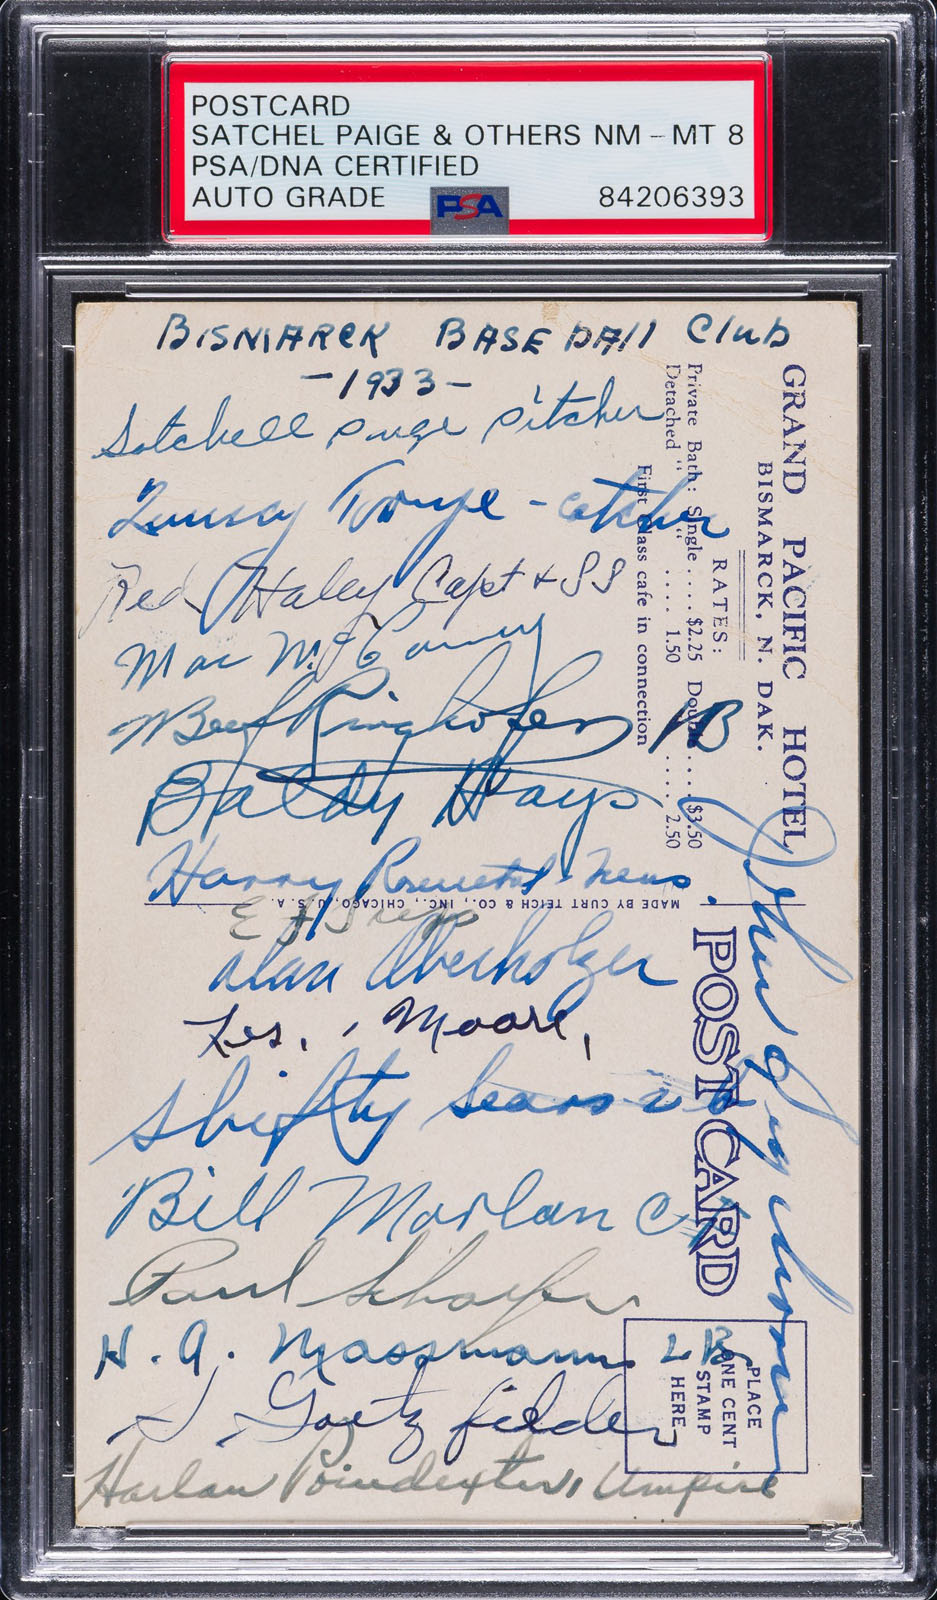 POSTCARD
SATCHEL PAIGE & OTHERS NM - MT 8
PSA/DNA CERTIFIED
AUTO GRADE PSA 84206393
BISMARCK BASEBALL Club
-1933-
Satchell Paige pitcher
Quincy Troupe - catcher
Red Haley Capt + SS
Beef Ringhofer 1B
Baldy Hays
Harry Rosenthal News
Alan Oberholzer
Les. Moore,
Shifty Sears
Bill Morlan
Paul Schaefer
H. A. Massmann LB
J. Goetz fielder
Harlan Poindexter, Umpire
GRAND PACIFIC HOTEL
BISMARCK, N. DAK.
RATES:
Private Bath: Single .... $2.25 Double .... $3.50
Detached " " .... 1.50 .... 2.50
First class cafe in connection
MADE BY CURT TEICH & CO., INC., CHICAGO, U.S.A.
POST CARD
PLACE
ONE CENT
STAMP
HERE
PSA